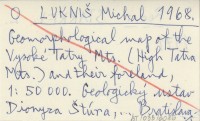 O LUKNIŠ, Michal 1968.
Geomorphological map of the
Vysoké Tatry Mts. (High Tatra
Mts.) and their foreland,
1: 50 000. Geologický ústav
Dionýza Štúra, ... Bratislava